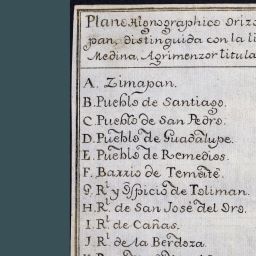 Plano Hignographico Orizo
pan, distinguida con la li
Medina, Agrimenzor titula
A. Zimapan.
B. Pueblo de Santiago.
C. Pueblo de San Pedro.
D. Pueblo de Guadalupe.
E. Pueblo de Remedios.
F. Barrio de Temeste.
G. R.l y Ospicio de Toliman.
H. R.l de San José del Oro.
I. R.l de Cañas.
J. R.l de la Berdoza.